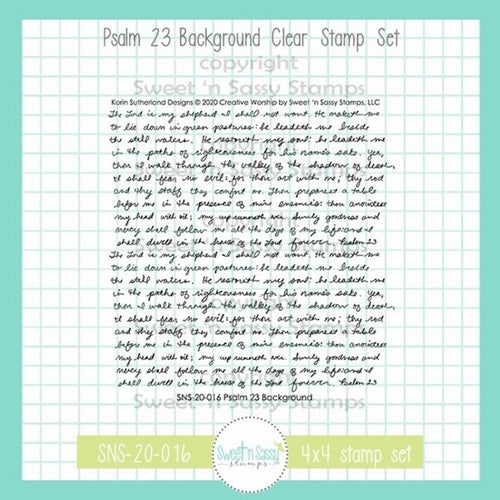 Psalm 23 Background Clear Stamp Set
copyright
Sweet 'n Sassy Stamps
Karin Sutherland Designs © 2020 Creative Worship by Sweet 'n Sassy Stamps, LLC
The Lord is my shepherd I shall not want. He maketh me
to lie down in green pastures: he leadeth me beside
the still waters. He restoreth my soul: he leadeth me
in the paths of righteousness for his name's sake. Yea,
though I walk through the valley of the shadow of death,
I shall fear no evil: for thou art with me; thy rod
and thy staff they comfort me. Thou preparest a table
before me in the presence of mine enemies: thou anointest
my head with oil; my cup runneth over. Surely goodness and
mercy shall follow me all the days of my life: and I
shall dwell in the house of the Lord forever. Psalm 23
The Lord is my shepherd I shall not want. He maketh me
to lie down in green pastures: he leadeth me beside
the still waters. He restoreth my soul: he leadeth me
in the paths of righteousness for his name's sake. Yea,
though I walk through the valley of the shadow of death,
I shall fear no evil: for thou art with me; thy rod
and thy staff they comfort me. Thou preparest a table
before me in the presence of mine enemies: thou anointest
my head with oil; my cup runneth over. Surely goodness and
mercy shall follow me all the days of my life: and I
shall dwell in the house of the Lord forever. Psalm 23
copyright
Sweet 'n Sassy Stamps
SNS-20-016 Psalm 23 Background
SNS-20-016
Sweet 'n Sassy
stamps
4x4 stamp set